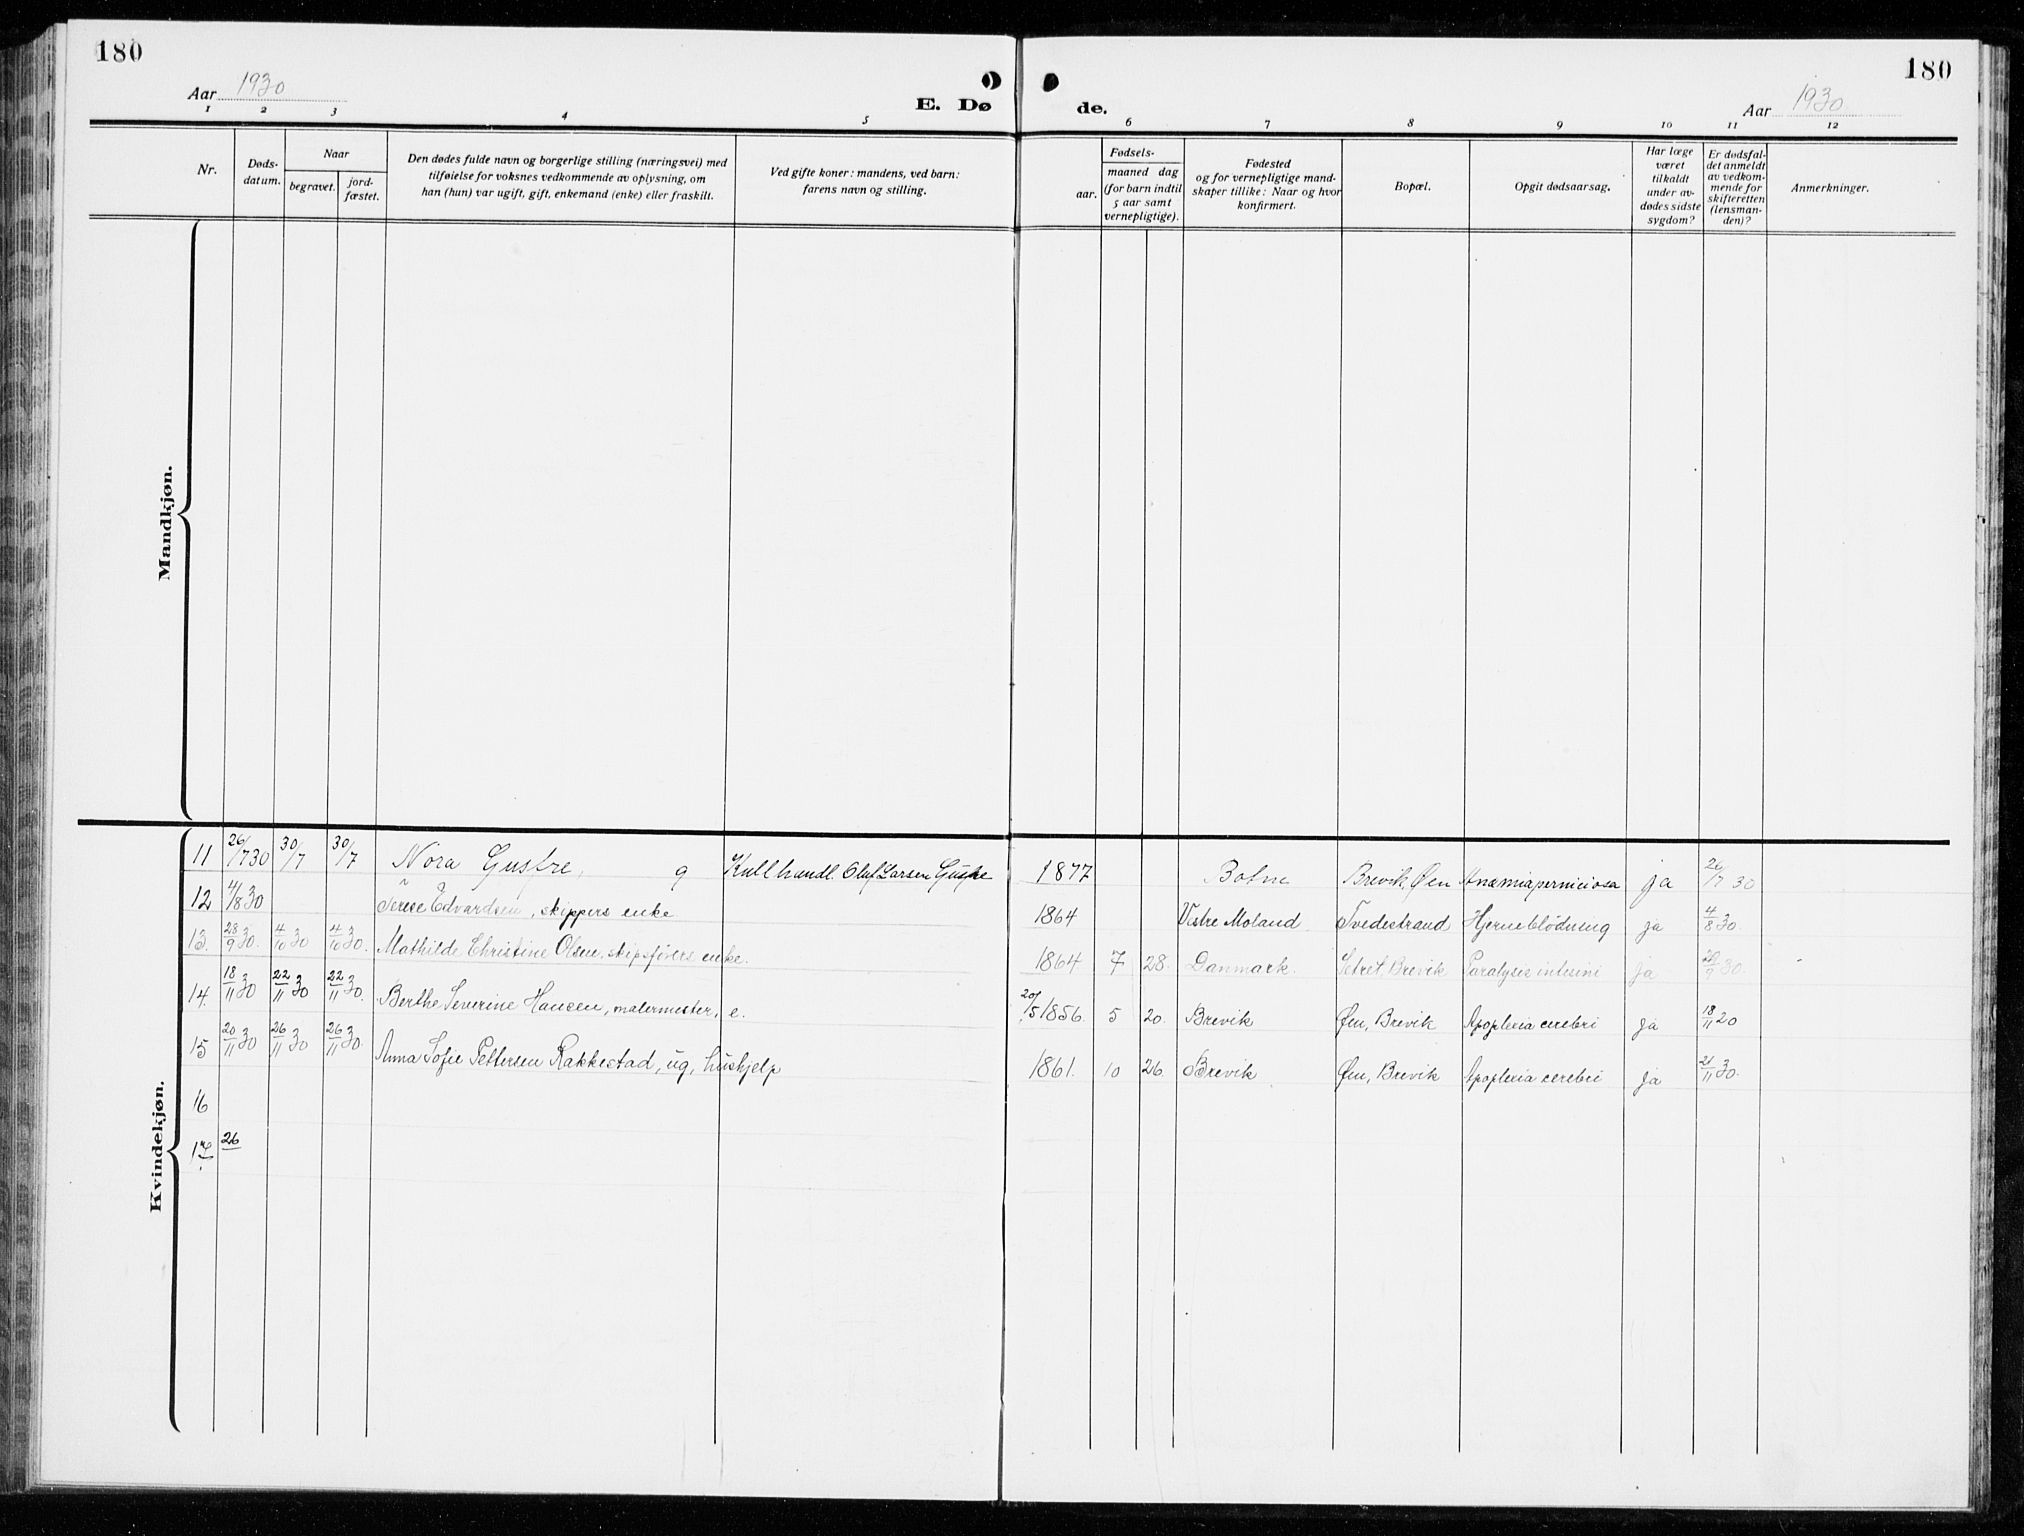 180
180
Aar 1930
E. Dø de.
Aar 1930
1 2 3 4 5 6 7 8 9 10 11 12
Nr.
Døds-
datum.
Naar
begravet.
jord-
fæstet.
Den dødes fulde navn og borgerlige stilling (næringsvei) med
tilføielse for voksnes vedkommende av oplysning, om
han (hun) var ugift, gift, enkemand (enke) eller fraskilt.
Ved gifte koner: mandens, ved barn:
farens navn og stilling.
Fødsels-
aar.
maaned dag
(for barn indtil
5 aar samt
vernepligtige).
Fødested
og for vernepligtige mand-
skaper tillike: Naar og hvor
konfirmert.
Bopæl.
Opgit dødsaarsag.
Har læge
været
tilkaldt
under av-
dødes sidste
sygdom?
Er dødsfal-
det anmeldt
av vedkom-
mende for
skifteretten
(lensman-
den)?
Anmerkninger.
Mandkjøn.
Kvindekjøn.
11 26/7 30 30/7 30/7 Nora Gusfre, g Kullhandl. Olaf Larsen Gusfre 1877 Botne Brevik, Øen Anæmia perniciosa ja 26/7 30
12 4/8 30 Terese Edvardsen, skippers enke 1864 Vestre Moland Tvedestrand Hjerneblödning ja 4/8 30
13. 28/9 30. 4/10 30 4/10 30. Mathilde Christine Olsen, skipsförers enke. 1864 7 28. Danmark. Setret Brevik Paralysis intesini ja 29/9 30.
14. 18/11 30 22/11 30 22/11 30. Berthe Severine Hansen, malermester, e. 20/5 1856. 5 20. Brevik Øen, Brevik Apoplexia cerebri ja 18/11 20
15 20/11 30 26/11 30 26/11 30. Anna Sofie Pettersen Rakkestad, ug, hushjelp 1861. 10 26. Brevik Øen, Brevik Apoplexia cerebri ja 21/11 30.
16
17 26